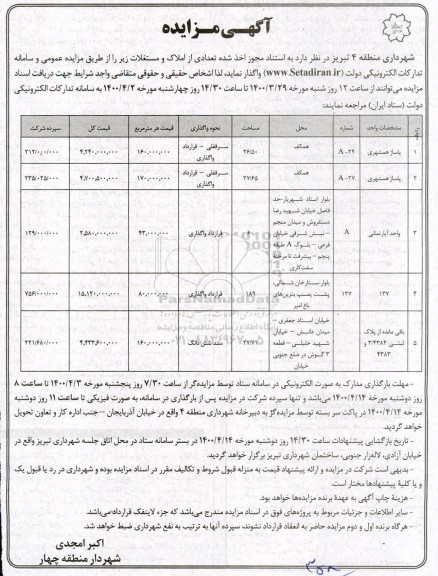 آگهی مزایده
شهرداری منطقه ۴ تبریز در نظر دارد به استناد مجوز اخذ شده تعدادی از املاک و مستغلات زیر را از طریق مزایده عمومی و سامانه
تدارکات الکترونیکی دولت (www.Setadiran.ir) واگذار نماید، لذا اشخاص حقیقی و حقوقی متقاضی واجد شرایط جهت دریافت اسناد
مزایده می‌توانند از ساعت ۱۲ روز شنبه مورخه ۱۴۰۰/۳/۲۹ تا ساعت ۱۴/۳۰ روز چهارشنبه مورخه ۱۴۰۰/۴/۲ به سامانه تدارکات الکترونیکی
دولت (ستاد ایران) مراجعه نمایند:
ردیف مشخصات واحد شماره محل مساحت نحوه واگذاری قیمت هر مترمربع قیمت کل سپرده شرکت
۱ پاساژ همشهری A-۲۲ همکف ۲۶/۵۰ سرقفلی - قرارداد واگذاری ۱۶۰/۰۰۰/۰۰۰ ۴,۲۴۰,۰۰۰,۰۰۰ ۲۱۲/۰۰۰/۰۰۰
۲ پاساژ همشهری A-۲۷ همکف ۲۷/۶۵ سرقفلی - قرارداد واگذاری ۱۷۰/۰۰۰/۰۰۰ ۴,۷۰۰,۵۰۰,۰۰۰ ۲۳۵/۰۲۵/۰۰۰
۳ واحد آپارتمانی A بلوار استاد شهریار-حد
فاصل خیابان شهید رضا
دستفروش و میدان منجم
- نبش شرقی خیابان
فرعی - بلوک A طبقه
پنجم - پیشرفت تا مرحله
سفت‌کاری
قرارداد واگذاری ۴۳,۰۰۰,۰۰۰ ۲,۵۸۰,۰۰۰,۰۰۰ ۱۲۹/۰۰۰/۰۰۰
۴ ۱۳۷ ۱۳۷ بلوار ستارخان شمالی-
پشت پمپ بنزین‌های
باغ امیر
۱۸۹ قرارداد واگذاری ۸۰,۰۰۰,۰۰۰ ۱۵,۱۲۰,۰۰۰,۰۰۰ ۷۵۶/۰۰۰/۰۰۰
۵ باقی مانده از پلاک
ثبتی ۳/۴۳۸۴ و
۴۳۸۳
خیابان استاد جعفری -
میدان مانقش - خیابان
شهید خلیلی - قطعه
۳ گوش در ضلع جنوبی
خیابان
۲۷/۷۱ ششدانگ ۱۶۰/۰۰۰/۰۰۰ ۴,۴۳۳,۶۰۰,۰۰۰ ۲۲۱/۶۸۰/۰۰۰
ParsNamadData
پایگاه اطلاع رسانی مناقصه و مزایده
- مهلت بارگذاری مدارک به صورت الکترونیکی در سامانه ستاد توسط مزایده‌گر از ساعت ۷/۳۰ روز پنجشنبه مورخه ۱۴۰۰/۴/۳ تا ساعت ۸
روز دوشنبه مورخه ۱۴۰۰/۴/۱۴ می‌باشد و تنها سپرده شرکت در مزایده پس از بارگذاری در سامانه، به صورت فیزیکی تا ساعت ۱۱ روز دوشنبه
مورخه ۱۴۰۰/۴/۱۴ در پاکت سر بسته توسط مزایده‌گر به دبیرخانه شهرداری منطقه ۴ واقع در خیابان آذربایجان -جنب اداره کار و تعاون تحویل
خواهد گردید.
- تاریخ بازگشایی پیشنهادات ساعت ۱۴/۳۰ روز دوشنبه مورخ ۱۴۰۰/۴/۱۴ در بستر سامانه ستاد در محل اتاق جلسه شهرداری تبریز واقع در
خیابان آزادی، لاله‌زار جنوبی، ساختمان شهرداری تبریز برگزار خواهد گردید.
- بدیهی است شرکت در مزایده و ارائه پیشنهاد قیمت به منزله قبول شروط و تکالیف مقرر در اسناد مزایده بوده و شهرداری در رد یا قبول یک
و یا کلیۀ پیشنهادها مختار است.
- هزینۀ چاپ آگهی به عهدۀ برنده مزایده‌ها خواهد بود.
- سایر اطلاعات و جزئیات مربوط به پروژه‌های فوق در اسناد مزایده مندرج می‌باشد که جزء لاینفک قرارداد می‌باشد.
- هرگاه برنده اول و دوم مزایده حاضر به انعقاد قرارداد نشوند، سپرده آنها به ترتیب به نفع شهرداری ضبط خواهد شد.
اکبر امجدی
شهردار منطقه چهار